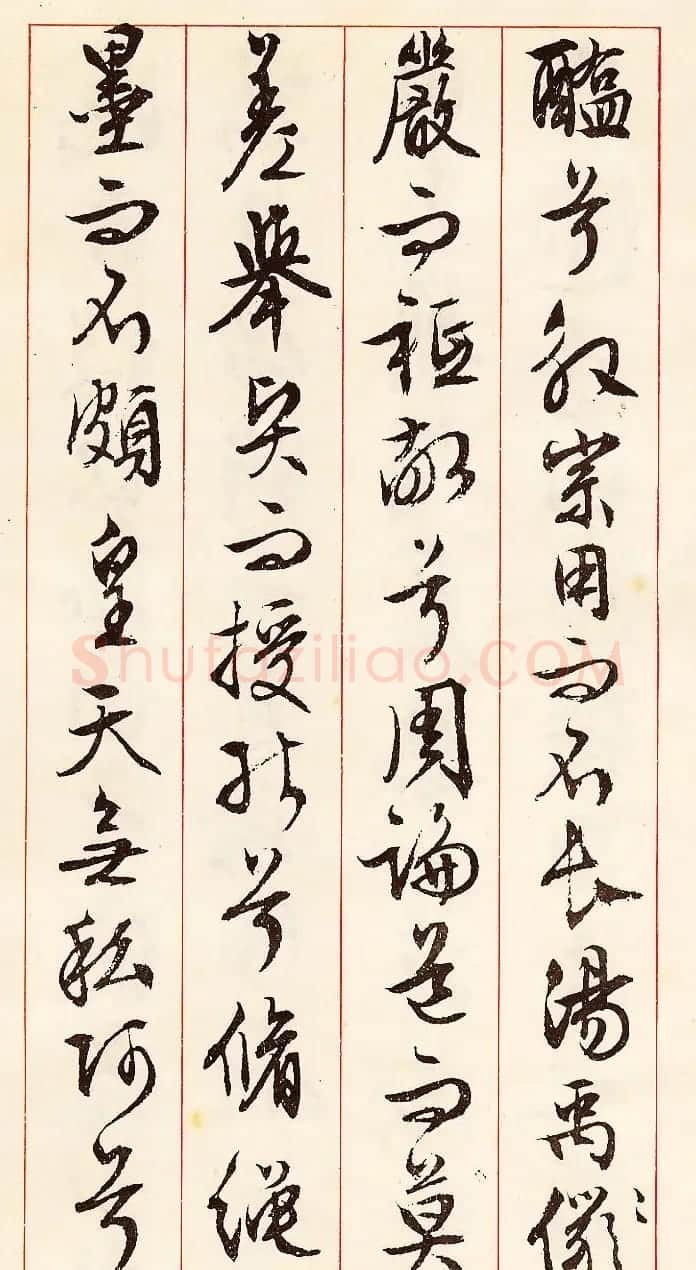 醢兮殷宗用而不長湯禹儼
嚴而祗敬兮周論道而莫
差舉賢而授能兮脩繩
墨而不頗皇天無私阿兮
Shufaziliao.COM